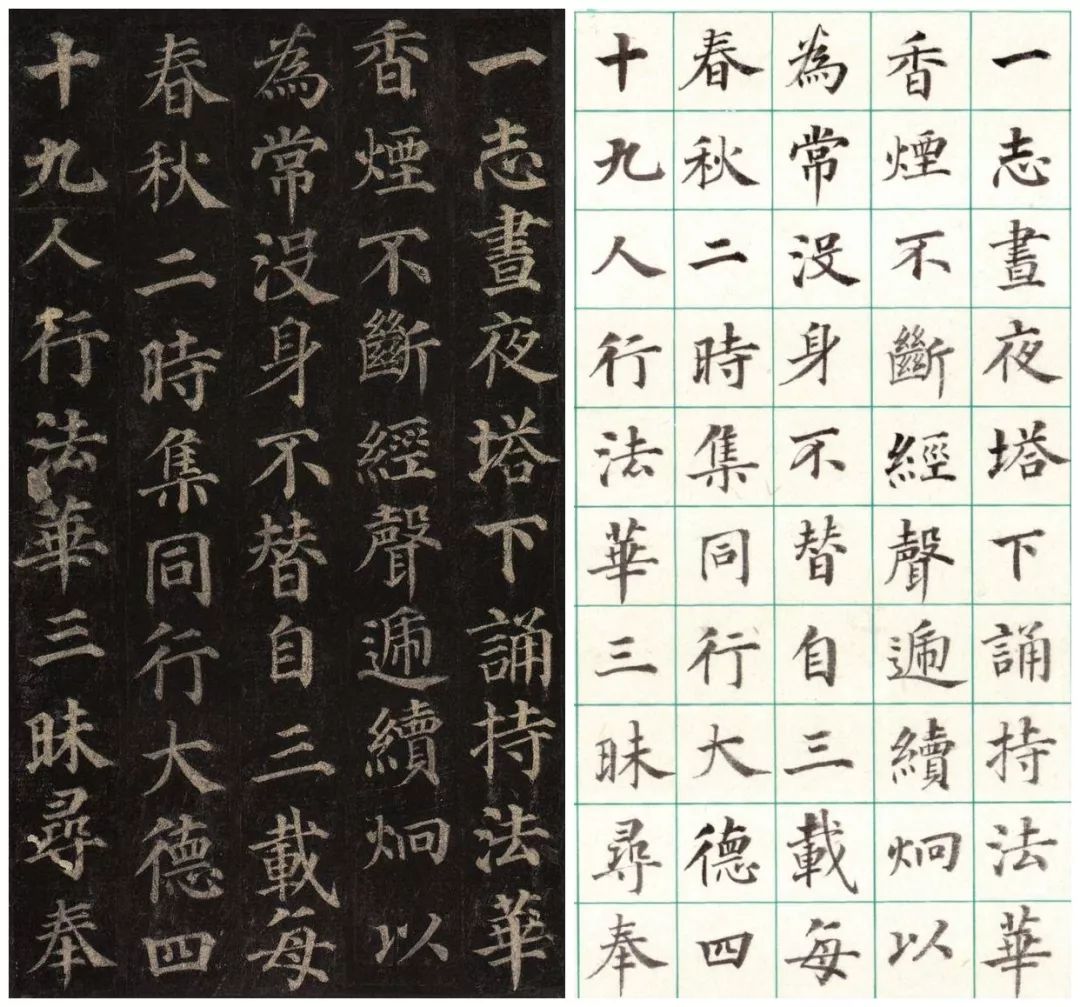 一志晝夜塔下誦持法華
香煙不斷經聲遞續炯以
為常沒身不替自三載每
春秋二時集同行大德四
十九人行法華三昧尋奉
一志晝夜塔下誦持法華
香煙不斷經聲遞續炯以
為常沒身不替自三載每
春秋二時集同行大德四
十九人行法華三昧尋奉